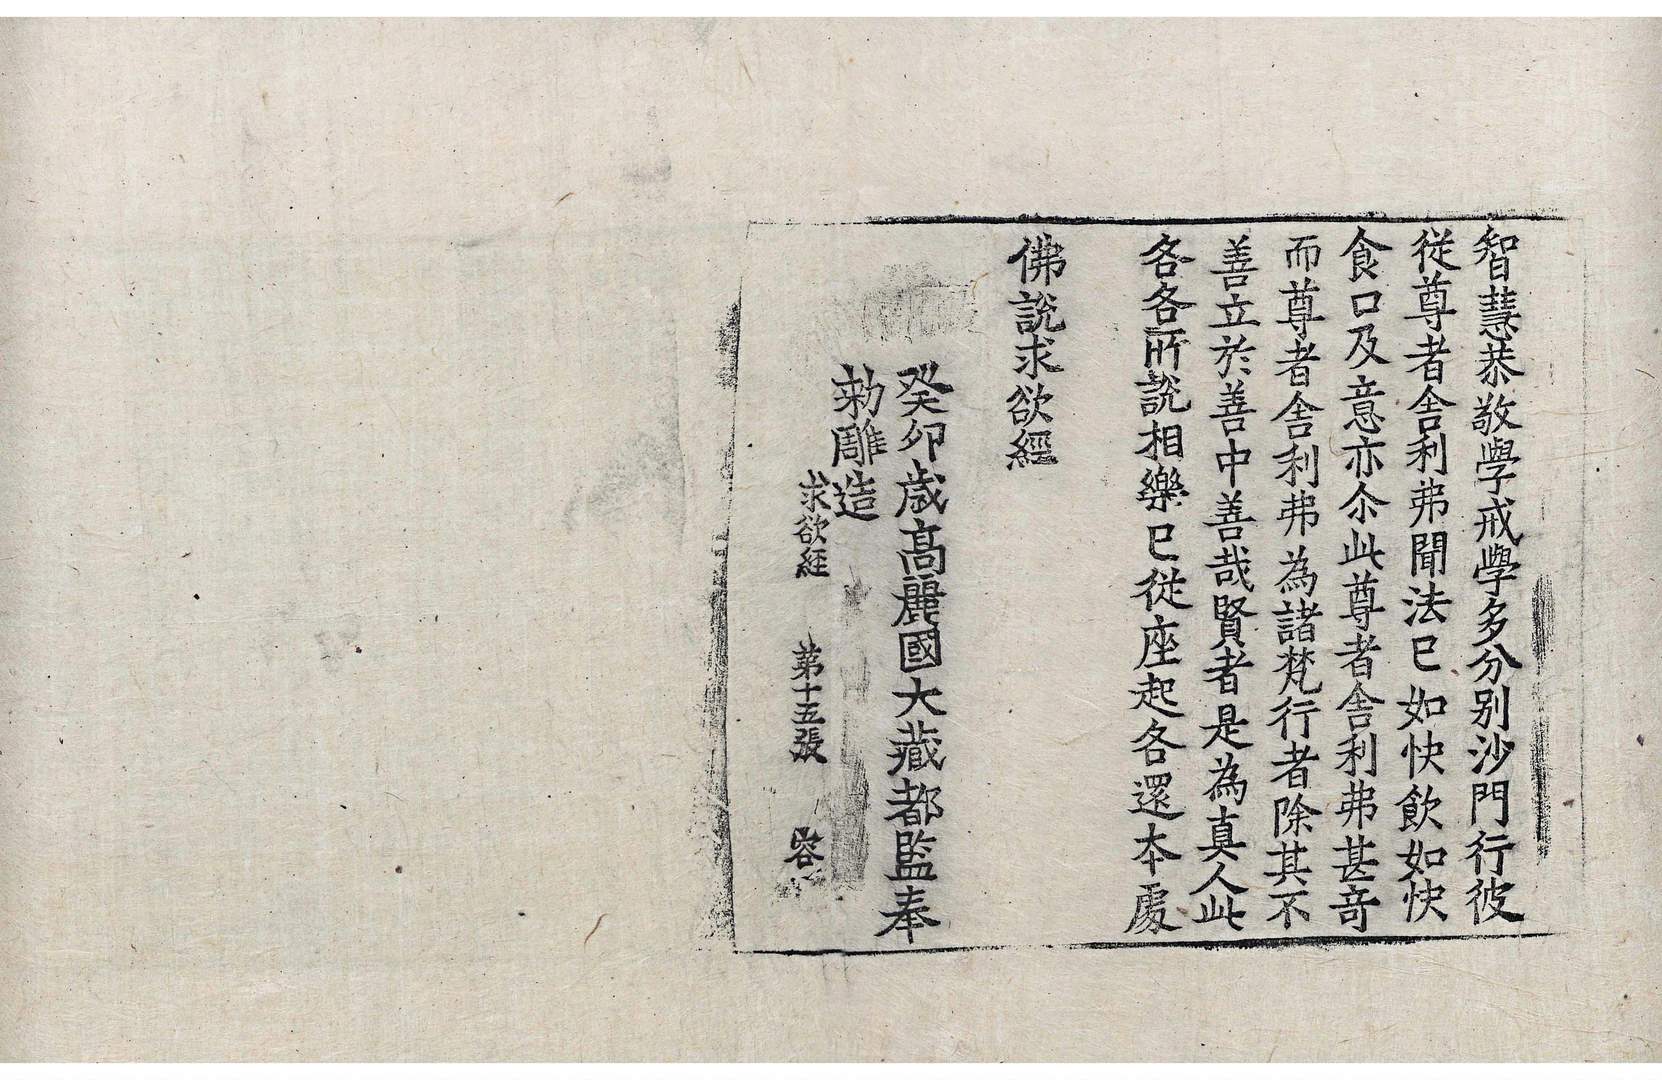 智慧恭敬學戒學多分別沙門行彼
從尊者舍利弗聞法已如快飲如快
食口及意亦尒此尊者舍利弗甚竒
而尊者舍利弗為諸梵行者除其不
善立於善中善哉賢者是為真人此
各各所說相樂已從座起各還本處
佛說求欲經
癸卯歳高麗國大藏都監奉
勑雕造
求欲経 苐十五張 容